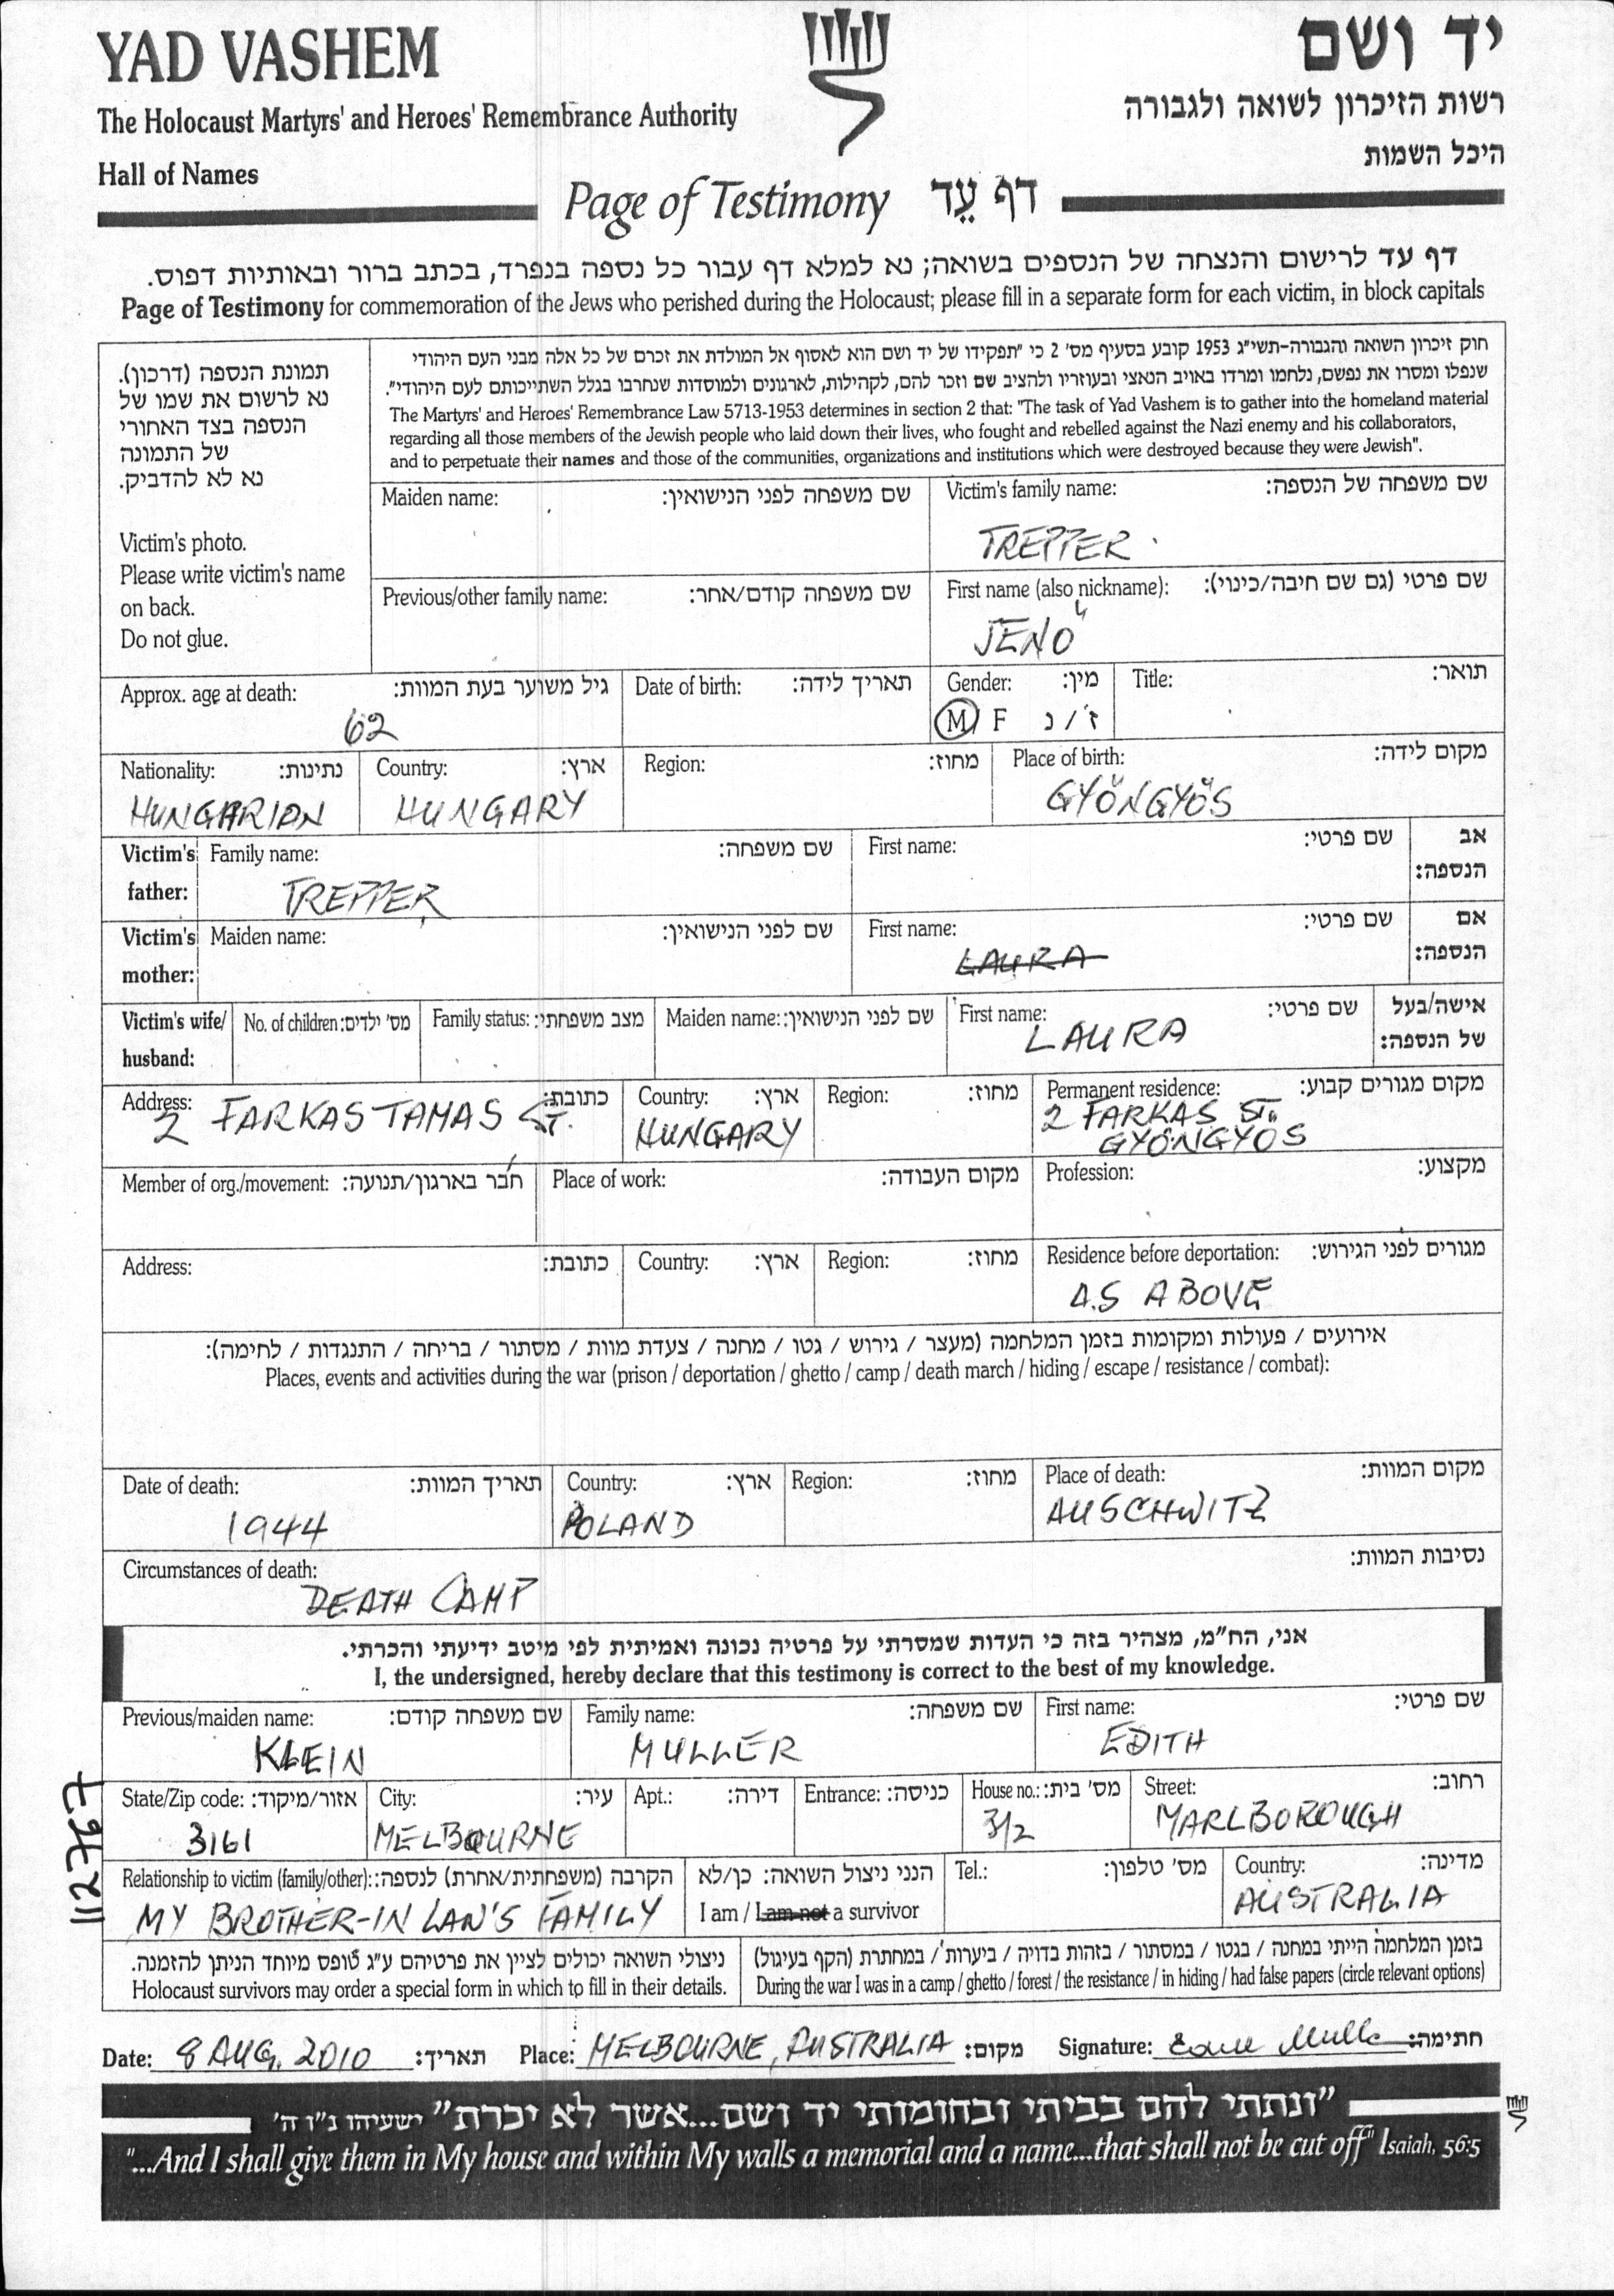 YAD VASHEM
יד ושם
The Holocaust Martyrs' and Heroes' Remembrance Authority
רשות הזיכרון לשואה ולגבורה
Hall of Names
היכל השמות
Page of Testimony דף עֵד
דף עד לרישום והנצחה של הנספים בשואה; נא למלא דף עבור כל נספה בנפרד, בכתב ברור ובאותיות דפוס.
Page of Testimony for commemoration of the Jews who perished during the Holocaust; please fill in a separate form for each victim, in block capitals
תמונת הנספה (דרכון).
נא לרשום את שמו של
הנספה בצד האחורי
של התמונה
נא לא להדביק.
Victim's photo.
Please write victim's name
on back.
Do not glue.
חוק זיכרון השואה והגבורה-תשי״ג 1953 קובע בסעיף מס' 2 כי ״תפקידו של יד ושם הוא לאסוף אל המולדת את זכרם של כל אלה מבני העם היהודי
שנפלו ומסרו את נפשם, נלחמו ומרדו באויב הנאצי ובעוזריו ולהציב שם וזכר להם, לקהילות, לארגונים ולמוסדות שנחרבו בגלל השתייכותם לעם היהודי״.
The Martyrs' and Heroes' Remembrance Law 5713-1953 determines in section 2 that: "The task of Yad Vashem is to gather into the homeland material
regarding all those members of the Jewish people who laid down their lives, who fought and rebelled against the Nazi enemy and his collaborators,
and to perpetuate their names and those of the communities, organizations and institutions which were destroyed because they were Jewish".
Maiden name: שם משפחה לפני הנישואין:
Victim's family name: שם משפחה של הנספה:
TREPPER
Previous/other family name: שם משפחה קודם/אחר:
First name (also nickname): שם פרטי (גם שם חיבה/כינוי):
JENŐ
Approx. age at death: גיל משוער בעת המוות:
62
Date of birth: תאריך לידה:
Gender: מין:
M/ F ז' / נ
Title: תואר:
Nationality: נתינות:
HUNGARIAN
Country: ארץ:
HUNGARY
Region: מחוז:
Place of birth: מקום לידה:
GYÖNGYÖS
Victim's father:
Family name: שם משפחה:
TREPPER
First name: שם פרטי:
אב הנספה:
Victim's mother:
Maiden name: שם לפני הנישואין:
First name: שם פרטי:
LAURA
אם הנספה:
Victim's wife/ husband:
No. of children: מס' ילדים:
Family status: מצב משפחתי:
Maiden name: שם לפני הנישואין:
First name: שם פרטי:
LAURA
אישה/בעל של הנספה:
Address: כתובת:
2 FARKAS TAMAS ST.
Country: ארץ:
HUNGARY
Region: מחוז:
Permanent residence: מקום מגורים קבוע:
2 FARKAS ST.
GYÖNGYOS
Member of org./movement: חבר בארגון/תנועה:
Place of work: מקום העבודה:
Profession: מקצוע:
Address: כתובת:
Country: ארץ:
Region: מחוז:
Residence before deportation: מגורים לפני הגירוש:
AS ABOVE
אירועים / פעולות ומקומות בזמן המלחמה (מעצר / גירוש / גטו / מחנה / צעדת מוות / מסתור / בריחה / התנגדות / לחימה):
Places, events and activities during the war (prison / deportation / ghetto / camp / death march / hiding / escape / resistance / combat):
Date of death: תאריך המוות:
1944
Country: ארץ:
POLAND
Region: מחוז:
Place of death: מקום המוות:
AUSCHWITZ
Circumstances of death: נסיבות המוות:
DEATH CAMP
אני, הח״מ, מצהיר בזה כי העדות שמסרתי על פרטיה נכונה ואמיתית לפי מיטב ידיעתי והכרתי.
I, the undersigned, hereby declare that this testimony is correct to the best of my knowledge.
Previous/maiden name: שם משפחה קודם:
KLEIN
Family name: שם משפחה:
MULLER
First name: שם פרטי:
EDITH
State/Zip code: אזור/מיקוד:
3161
City: עיר:
MELBOURNE
Apt.: דירה:
Entrance: כניסה:
House no.: מס' בית:
3/2
Street: רחוב:
MARLBOROUGH
Relationship to victim (family/other): הקרבה (משפחתית/אחרת) לנספה:
MY BROTHER-IN LAN'S FAMILY
הנני ניצול השואה: כן/לא
I am / I am not a survivor
Tel.: מס' טלפון:
Country: מדינה:
AUSTRALIA
ניצולי השואה יכולים לציין את פרטיהם ע״ג טופס מיוחד הניתן להזמנה.
Holocaust survivors may order a special form in which to fill in their details.
בזמן המלחמה הייתי במחנה / בגטו / במסתור / בזהות בדויה / ביערות / במחתרת (הקף בעיגול)
During the war I was in a camp / ghetto / forest / the resistance / in hiding / had false papers (circle relevant options)
Date: 8 AUG. 2010 תאריך:
Place: MELBOURNE, AUSTRALIA מקום:
Signature: חתימה:
״ונתתי להם בביתי ובחומותי יד ושם...אשר לא יכרת״ ישעיהו נ״ו ה'
"...And I shall give them in My house and within My walls a memorial and a name...that shall not be cut off" Isaiah, 56:5